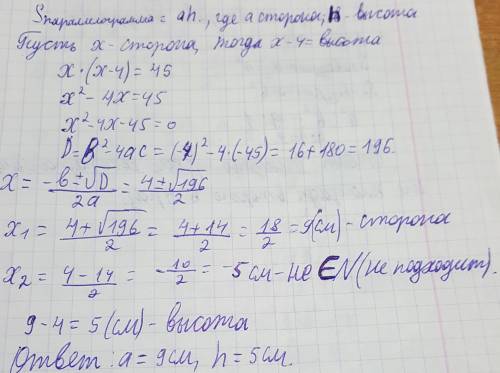 Sпараллилограмма = ah., где a сторона, h - высота
Пусть x - сторона, тогда x-4 = высота
x·(x-4) = 45
x² - 4x = 45
x² - 4x - 45 = 0
D = b² - 4ac = (4)² - 4·(-45) = 16 + 180 = 196.
x = -b ± √D / 2a = 4 ± √196 / 2
x₁ = 4 + √196 / 2 = 4 + 14 / 2 = 18 / 2 = 9(см) - сторона
x₂ = 4 - 14 / 2 = - 10 / 2 = -5 см - не ∈ N (не подходит).
9 - 4 = 5 (см) - высота
Ответ: a = 9 см, h = 5 см.